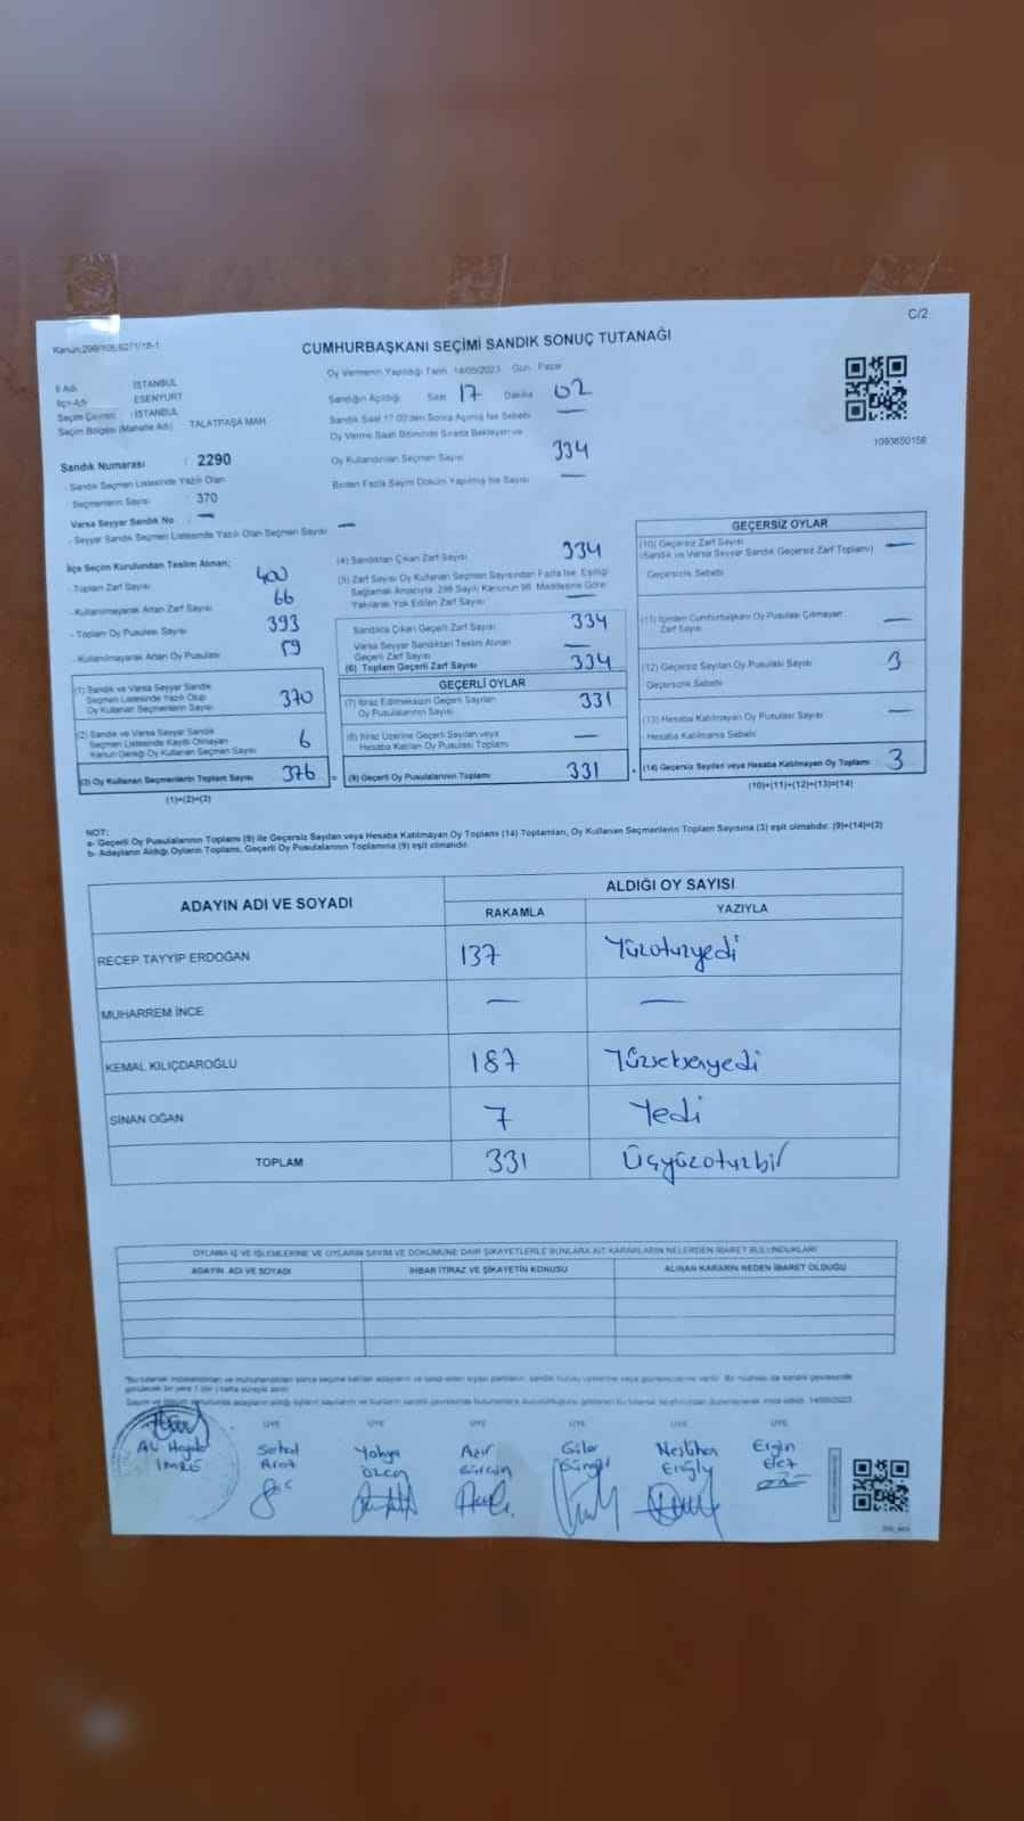 C/2
CUMHURBAŞKANI SEÇİMİ SANDIK SONUÇ TUTANAĞI
Oy Vermenin Yapıldığı Tarih 14/05/2023 Gün Pazar
İl Adı : İSTANBUL
İlçe Adı : ESENYURT
Seçim Çevresi : İSTANBUL
Seçim Bölgesi (Mahalle Adı) : TALATPAŞA MAH
Sandığın Açıldığı Saat 17 Dakika 02
Sandık Saat 17.00'den Sonra Açılmış İse Sebebi —
Oy Verme Saati Bitiminde Sırada Bekleyen ve
Oy Kullandırılan Seçmen Sayısı 334
Birden Fazla Sayım Döküm Yapılmış İse Sayısı —
1093650158
Sandık Numarası : 2290
- Sandık Seçmen Listesinde Yazılı Olan
Seçmenlerin Sayısı : 370
Varsa Seyyar Sandık No : —
- Seyyar Sandık Seçmen Listesinde Yazılı Olan Seçmen Sayısı —
İlçe Seçim Kurulundan Teslim Alınan;
- Toplam Zarf Sayısı 400
- Kullanılmayarak Artan Zarf Sayısı 66
- Toplam Oy Pusulası Sayısı 393
- Kullanılmayarak Artan Oy Pusulası 59
(1) Sandık ve Varsa Seyyar Sandık
Seçmen Listesinde Yazılı Olup
Oy Kullanan Seçmenlerin Sayısı 370
(2) Sandık ve Varsa Seyyar Sandık
Seçmen Listesinde Kayıtlı Olmayan
Kanun Gereği Oy Kullanan Seçmen Sayısı 6
(3) Oy Kullanan Seçmenlerin Toplam Sayısı 376
(1)+(2)=(3)
(4) Sandıktan Çıkan Zarf Sayısı 334
(5) Zarf Sayısı Oy Kullanan Seçmen Sayısından Fazla İse, Eşitliği
Sağlamak Amacıyla, 298 Sayılı Kanunun 98. Maddesine Göre
Yakılarak Yok Edilen Zarf Sayısı —
Sandıkta Çıkan Geçerli Zarf Sayısı 334
Varsa Seyyar Sandıktan Teslim Alınan
Geçerli Zarf Sayısı —
(6) Toplam Geçerli Zarf Sayısı 334
GEÇERLİ OYLAR
(7) İtiraz Edilmeksizin Geçerli Sayılan
Oy Pusulalarının Sayısı 331
(8) İtiraz Üzerine Geçerli Sayılan veya
Hesaba Katılan Oy Pusulası Toplamı —
(9) Geçerli Oy Pusulalarının Toplamı 331
GEÇERSİZ OYLAR
(10) Geçersiz Zarf Sayısı
(Sandık ve Varsa Seyyar Sandık Geçersiz Zarf Toplamı) —
Geçersizlik Sebebi
(11) İçinden Cumhurbaşkanı Oy Pusulası Çıkmayan
Zarf Sayısı —
(12) Geçersiz Sayılan Oy Pusulası Sayısı 3
Geçersizlik Sebebi
(13) Hesaba Katılmayan Oy Pusulası Sayısı —
Hesaba Katılmama Sebebi
(14) Geçersiz Sayılan veya Hesaba Katılmayan Oy Toplamı 3
(10)+(11)+(12)+(13)=(14)
NOT:
a- Geçerli Oy Pusulalarının Toplamı (9) ile Geçersiz Sayılan veya Hesaba Katılmayan Oy Toplamı (14) Toplamları, Oy Kullanan Seçmenlerin Toplam Sayısına (3) eşit olmalıdır. (9)+(14)=(3)
b- Adayların Aldığı Oyların Toplamı, Geçerli Oy Pusulalarının Toplamına (9) eşit olmalıdır.
ADAYIN ADI VE SOYADI ALDIĞI OY SAYISI
RAKAMLA YAZIYLA
RECEP TAYYİP ERDOĞAN 137 Yüzotuzyedi
MUHARREM İNCE — —
KEMAL KILIÇDAROĞLU 187 Yüzseksenyedi
SİNAN OĞAN 7 Yedi
TOPLAM 331 Üçyüzotuzbir
OYLAMA İŞ VE İŞLEMLERİNE VE OYLARIN SAYIM VE DÖKÜMÜNE DAİR ŞİKAYETLERLE BUNLARA AİT KARARLARIN NELERDEN İBARET BULUNDUKLARI
ADAYIN ADI VE SOYADI İHBAR İTİRAZ VE ŞİKAYETİN KONUSU ALINAN KARARIN NEDEN İBARET OLDUĞU
ÜYE ÜYE ÜYE ÜYE ÜYE ÜYE